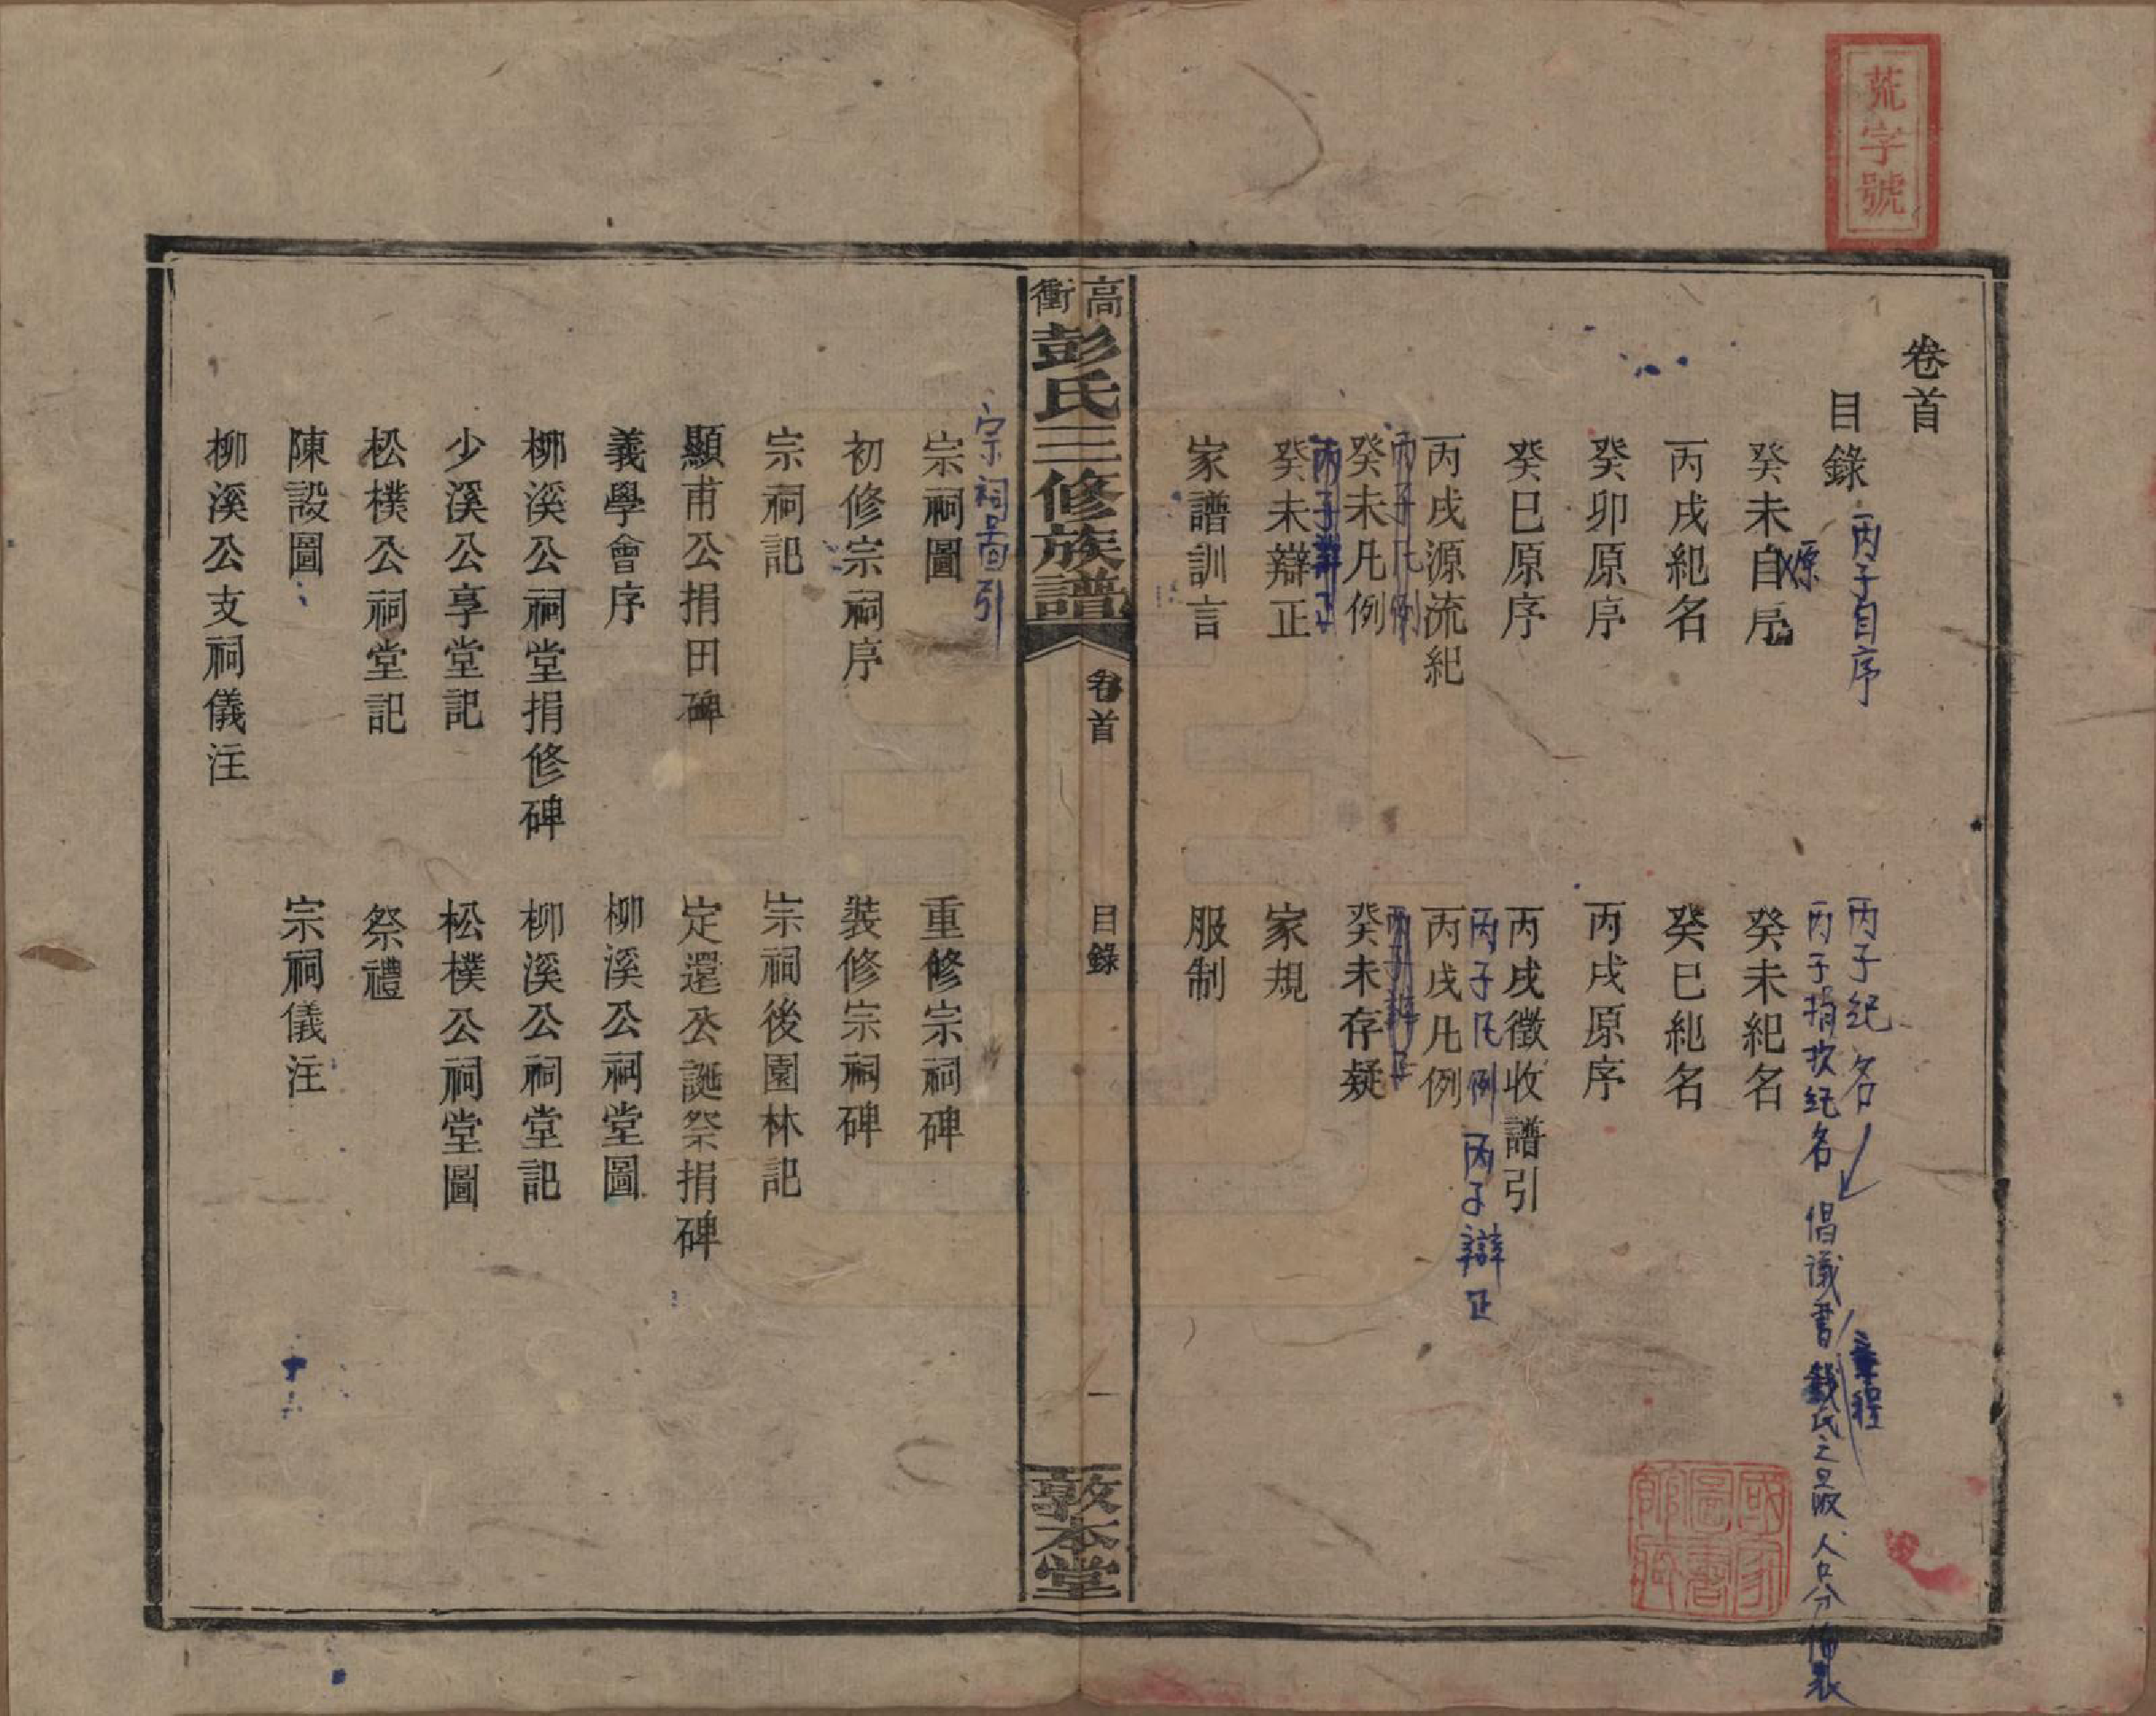 荒字號
卷首
目錄
丙子自序
丙子紀名
丙子捐欵紀名
倡議書
章程
人口分佈表
癸未自序
原
癸未紀名
丙戌紀名
癸巳紀名
癸卯原序
丙戌原序
癸巳原序
丙戌徵收譜引
丙戌源流紀
丙子凡例
丙子辯正
丙戌凡例
丙子凡例
癸未凡例
丙子辨正
癸未存疑
丙子辨正
癸未辯正
家規
家譜訓言
服制
國家圖書館藏
高衝彭氏三修族譜
卷首
目錄
一
敦本堂
宗祠圖引
宗祠圖
重修宗祠碑
初修宗祠序
裝修宗祠碑
宗祠記
宗祠後園林記
顯甫公捐田碑
定還公誕祭捐碑
義學會序
柳溪公祠堂圖
柳溪公祠堂捐修碑
柳溪公祠堂記
少溪公享堂記
松樸公祠堂圖
松樸公祠堂記
祭禮
陳設圖
宗祠儀注
柳溪公支祠儀注